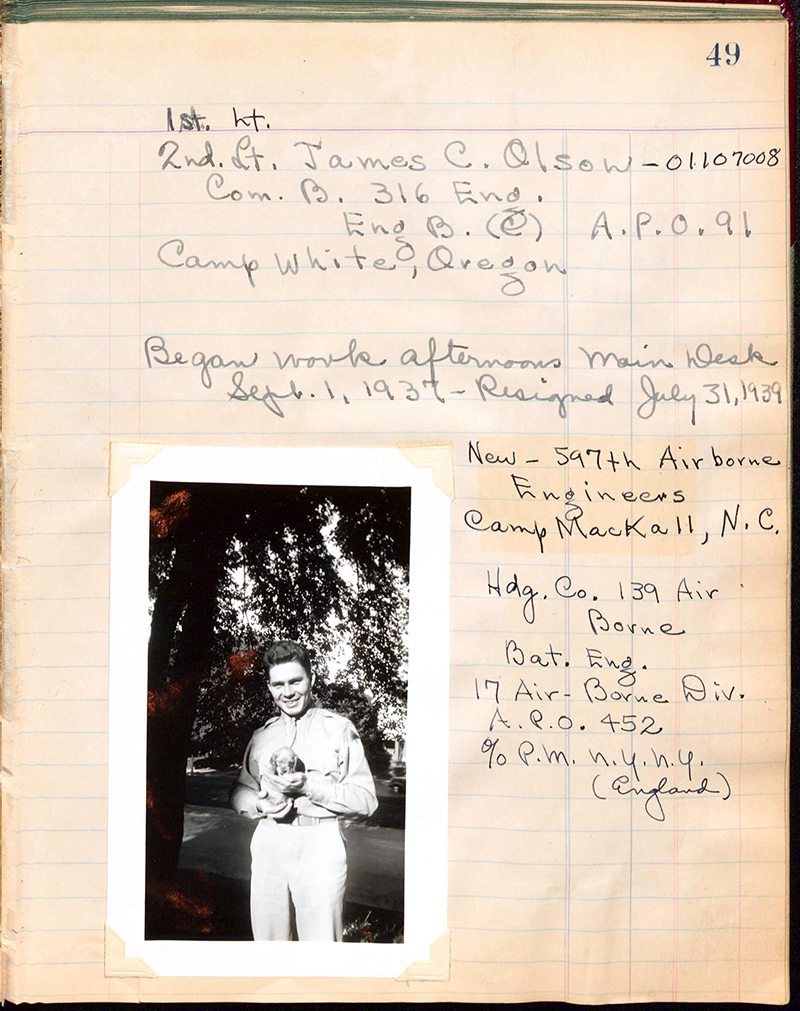 49
1st. Lt.
2nd. Lt. James C. Olson - 01107008
Com. B. 316 Eng.
Eng B. (C) A.P.O. 91
Camp White, Oregon
Began work afternoons Main Desk
Sept. 1, 1937 - Resigned July 31, 1939
New - 597th Airborne
Engineers
Camp MacKall, N.C.
Hdg. Co. 139 Air
Borne
Bat. Eng.
17 Air-Borne Div.
A.P.O. 452
℅ P.M. N.Y. N.Y.
(England)